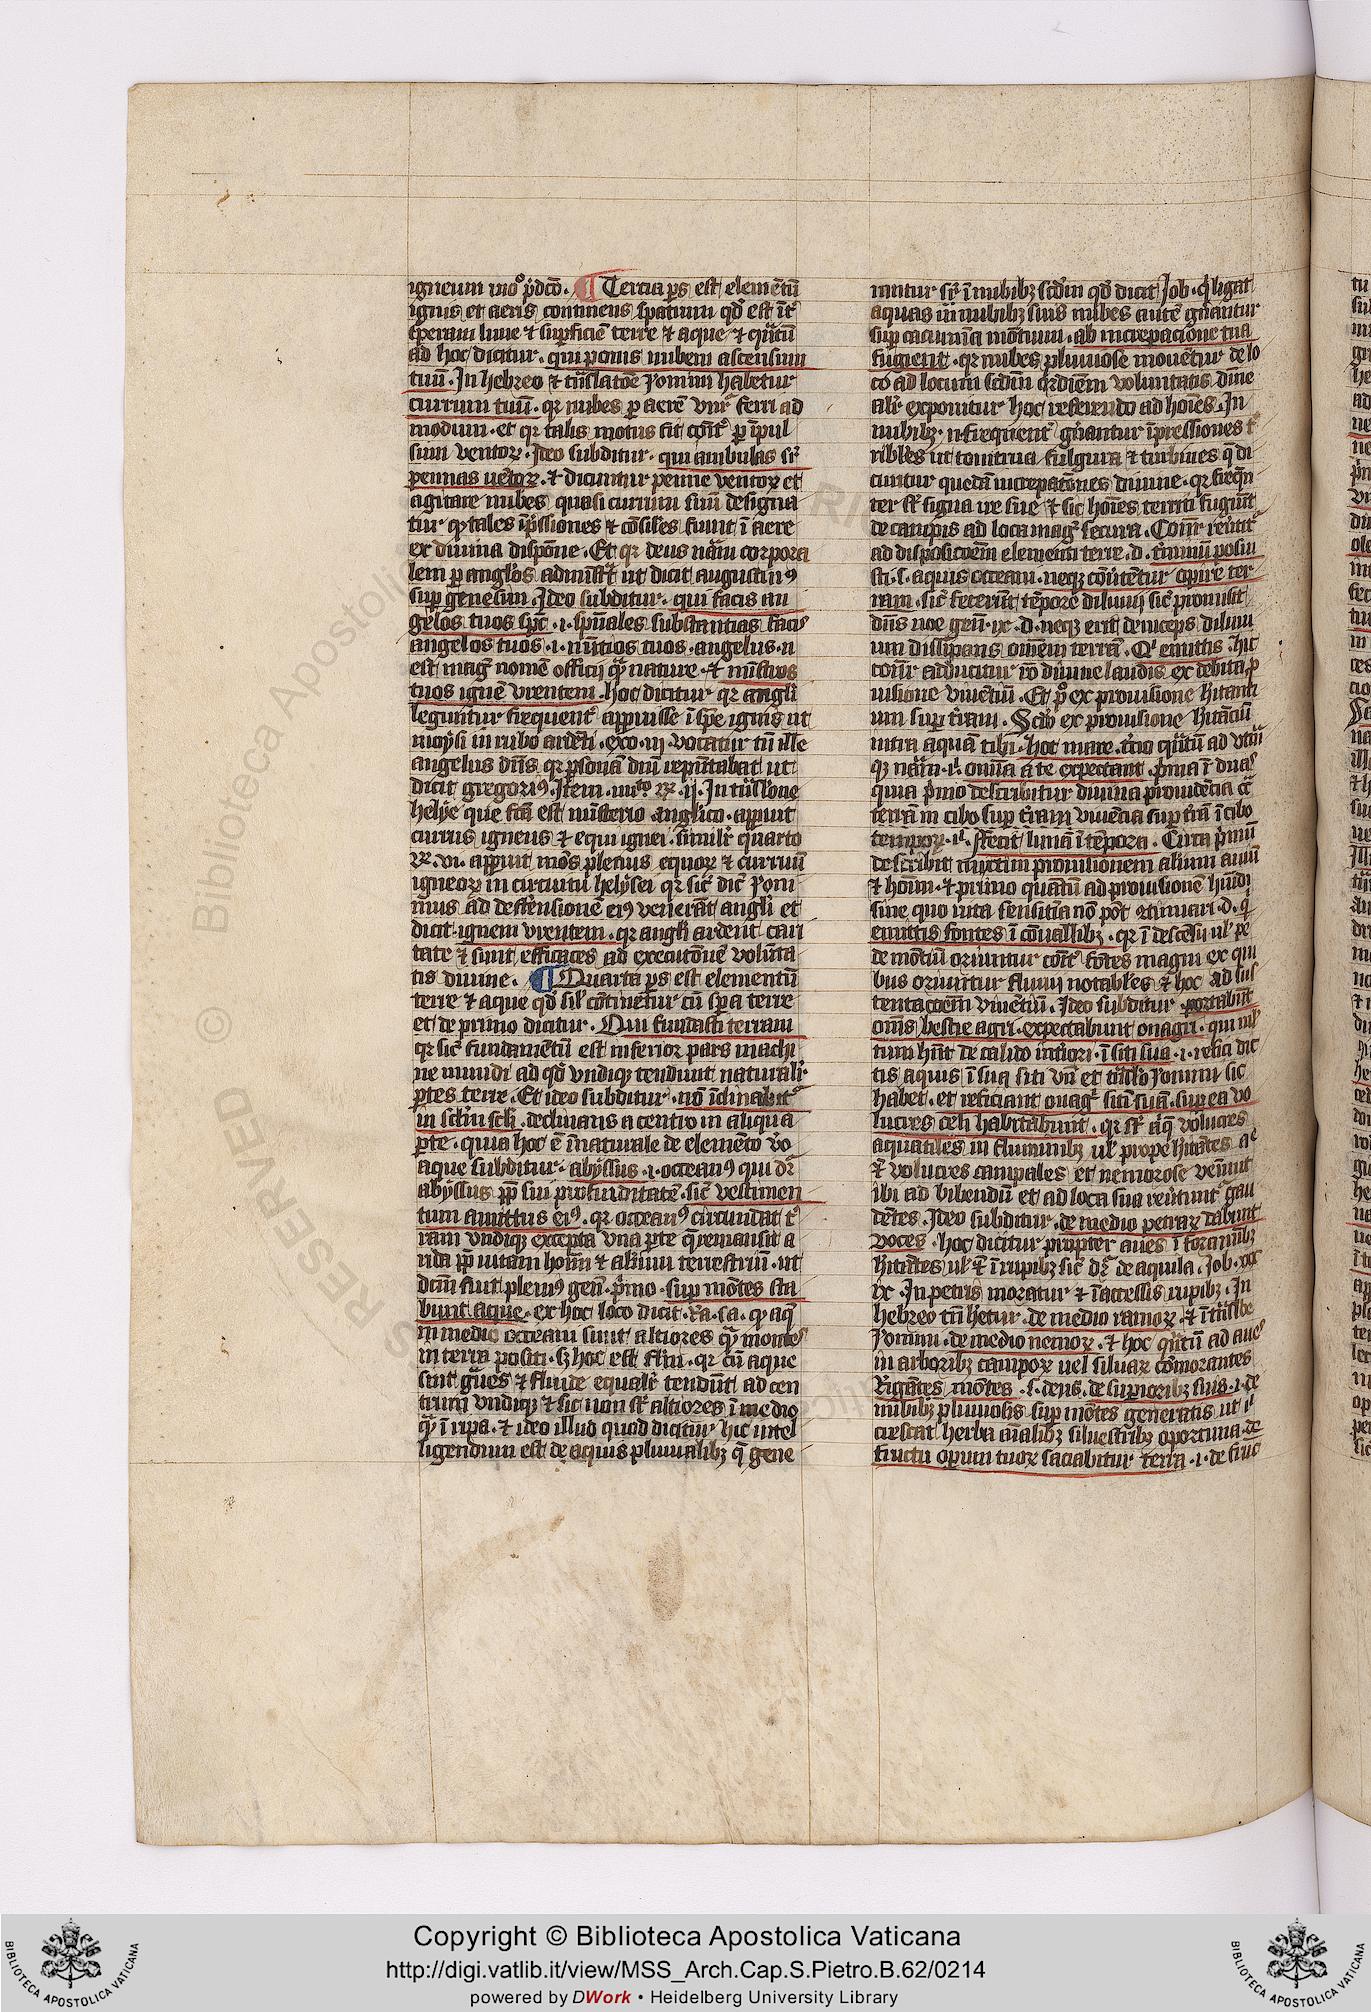 igneum mo° p̄dc̄o. ¶ Tercia ps̄ est elemētū
ignis et aeris continens spatium qd̄ est īt̄
speram lune & suꝑficiē terre & aque & qn̄tū
ad hoc dicitur . qui ponis nubem ascensum
tuū . In hebreo & trāslatōe Jeronimi habetur
currum tuū . qꝛ nubes ꝑ aerē vn̄r ferri ad
modum . et qꝛ talis motus fit cōit̄ ꝑ īpul
sum ventoꝝ . Ideo subditur . qui ambulas sr̄
pennas uētoꝝ . & dicuntur penne ventoꝝ et
agitare nubes quasi currum suū designa
tur ꝙ tales īp̄ssiones & cōsiles fiunt ī aere
ex diuina dispōne . Et qꝛ deus nām corpora
lem ꝑ anglōs admīst̄t ut dicit augustin9
suꝑ genesim . Ideo subditur . qui facis an
gelos tuos spc̄ . i . spūales substantias facis
angelos tuos . i . nūtios tuos . angelus . n
est maḡ nomē officij qͣ nature . & mīstros
tuos ignē vrentem . hoc dicitur qꝛ angli
leguntur frequent̄ apparuisse ī spē ignis ut
moysi in rubo ardēti . exo . iij vocatur tn̄ ille
angelus dn̄s qꝛ ꝑsonā dn̄i rep̄ntabat ut
dicit gregori9 . Item . iiij° ꝛꝝ . ij . In trāsl̄one
helye que fcā est mīsterio anglico . apparuit
currus igneus & equi ignei . similr̄ quarto
ꝛꝝ . vi . apparuit mōs plenus equoꝝ & curruū
igneoꝝ in circuitu helysei qꝛ sic̄ dic̄ Jeroni
mus ad deffensionē ei9 venerāt angli et
dicit . ignem vrentem . qꝛ angli ardent cari
tate & sunt efficaces ad executōnē volūta
tis diuine . ¶ Quarta ps̄ est elementū
terre & aque qd̄ sil̄ cōtinetur cū spa terre
et de primo dicitur . Qui fundasti terram
qꝛ sic̄ fundamētū est inferior pars machi
ne mundi ad qd̄ vndiqꝫ tendunt naturalr̄
ꝑtes terre . Et ideo subditur . nō īclinabit̄
in sclm̄ scli . declinans a centro in aliqua
ꝑte . quia hoc ē īnaturale de elemēto v̄o
aque subditur . abyssus . i . occean9 qui dr̄
abyssus ꝓp̄ sui profunditatē . sic̄ vestimen
tum amictus ei9 . qꝛ occean9 circundat t̄
ram vndiqꝫ excepta vna ꝑte q̄ remansit a
rida ꝓp̄ uitam hoīm & alīum terrestriū . ut
dcm̄ fuit plen9 gen̄ . p̄mo . suꝑ mōtes sta
bunt aque . ex hoc loco dicit . Ra . sa . ꝙ aq̄
in medio occeani sunt altiores qͣ montes
in terra positi . sꝫ hoc est flm̄ . qꝛ cū aque
sint gues & fluide equalr̄ tendūt ad cen
trum vndiqꝫ & sic non sūt altiores ī medio
qͣ ī ripa . & ideo illud quod dicitur hic intel
ligendum est de aquis pluuialibꝫ q̄ gene
rantur sr̄ ī nubibꝫ scd̄m qd̄ dicit Job . qͥ ligat
aquas in nubibꝫ suis nubes autē gn̄antur
suꝑ cacumīa mōtium . ab increpacione tua
fugient . qꝛ nubes pluuiose mouētur de lo
co ad locum scdm̄ ordīem voluntatis diuīe
alr̄ exponitur hoc referendo ad hoīes . In
nubibꝫ . n . frequent̄ gn̄antur īpressiones t̄
ribles ut tonitrua fulgura & turbines q̄ di
cuntur quedā increpatōnes diuine . qꝛ freqn̄
ter sūt signa ire sue & sic hoīes territi fugiūt
de campis ad loca maḡ secura . Cōnr̄ reūtit̄
ad disposicōem elementi terre . d . t̄minū posui
sti . s . aquis occeani . neqꝫ cōūtētur oꝑire ter
ram . sic̄ fecerūt tēpore diluuij sic̄ promisit
dn̄s noe gen̄ . ix . d . neqꝫ erit deinceps diluui
um dissipans omēm terrā . Qͥ emittis . hic
cōnr̄ adducitur ro diuine laudis ex debita ꝓ
uisione viuētiū . Et pͦ ex prouisione hītanti
um suꝑ t̄ram . Scd̄o ex prouisione hītāciū
intra aquā ibi . hoc mare . t̄cio qn̄tū ad vtrū
qꝫ nām . ꝉ . omīa a te expectant . p̄ma ī duas
quia p̄mo describitur diuina prouidēcia cͣ
terrā in cibo suꝑ t̄ram viuēcia suꝑ t̄rā ī cibo
tempoꝝ . ꝉ . ffecit lunā ī tēpora . Circa p̄mū
describit mixtim prouisionem alīum auiū
& hoīum . & primo quātū ad prouisionē hūidi
sine quo uita sensitīa nō pōt ꝯtinuari . d . qͥ
emittis fontes ī cōuallibꝫ . qꝛ ī descēsu ul̄ pe
de mōtiū oriuntur cōit̄ fōtes magni ex qui
bus oriuntur fluuij notabiles & hoc ad sus
tentacōem viuētiū . Ideo subditur . potabūt
om̄s bestie agri . expectabunt onagri . qui ml̄
tum hn̄t de calido intīori . ī siti sua . i . refici dic
tis aquis ī sua siti vn̄ et trāsl̄o Jeronimi sic
habet . et reficiant onaḡ sitī suā . suꝑ ea vo
lucres celi habitabunt . qꝛ sūt aq̄ volucres
aquatiles in fluminibꝫ ul̄ prope hītātes ac
& volucres campales et nemorose veniūt
ibi ad bibendū et ad loca sua reūtunt̄ gau
dētes . Ideo subditur . de medio petraꝝ dabunt
voces . hoc dicitur propter aues ī foraminibꝫ
hītātes ul̄ & ī rupibꝫ sic̄ dr̄ de aquila . Job . xxx
ix . In petris moratur & ī accessis rupibꝫ . In
hebreo tn̄ hētur . de medio ramoꝝ . & ī trāsl̄oe
Jeronimi . de medio nemoꝝ . & hoc qn̄tū ad aues
in arboribꝫ campoꝝ uel siluaꝝ cōmorantes
Rigātes mōtes . s . deus . de suꝑioribꝫ suis . i . de
nubibꝫ pluuiosis suꝑ mōtes generatis ut ī
crescat herba aīalibꝫ siluestribꝫ oportuna . de
fructu oꝑum tuoꝝ saciabitur terra . i . de fruc
Copyright © Biblioteca Apostolica Vaticana
http://digi.vatlib.it/view/MSS_Arch.Cap.S.Pietro.B.62/0214
powered by DWork • Heidelberg University Library
BIBLIOTECA APOSTOLICA VATICANA
BIBLIOTECA APOSTOLICA VATICANA